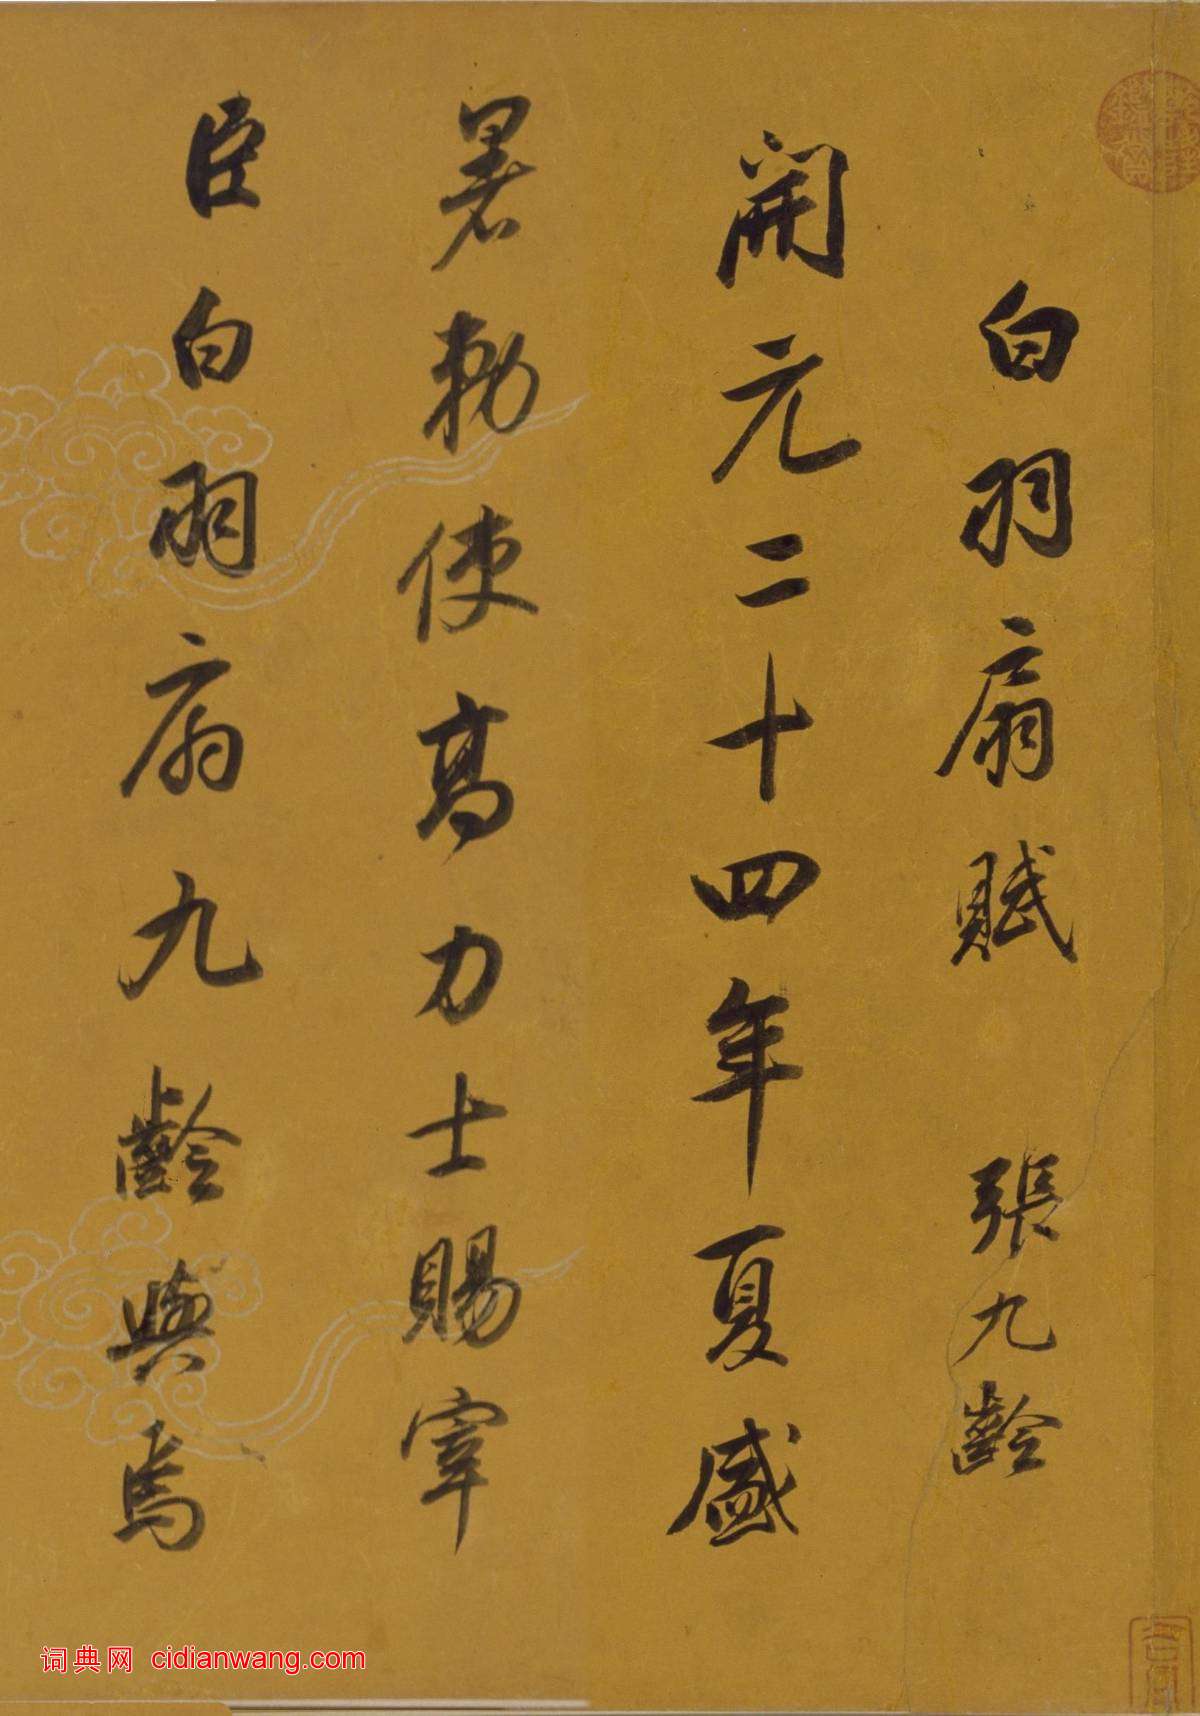 白羽扇賦 張九齡
開元二十四年夏盛
暑勑使髙力士賜宰
臣白羽扇九齡與焉
词典网 cidianwang.com